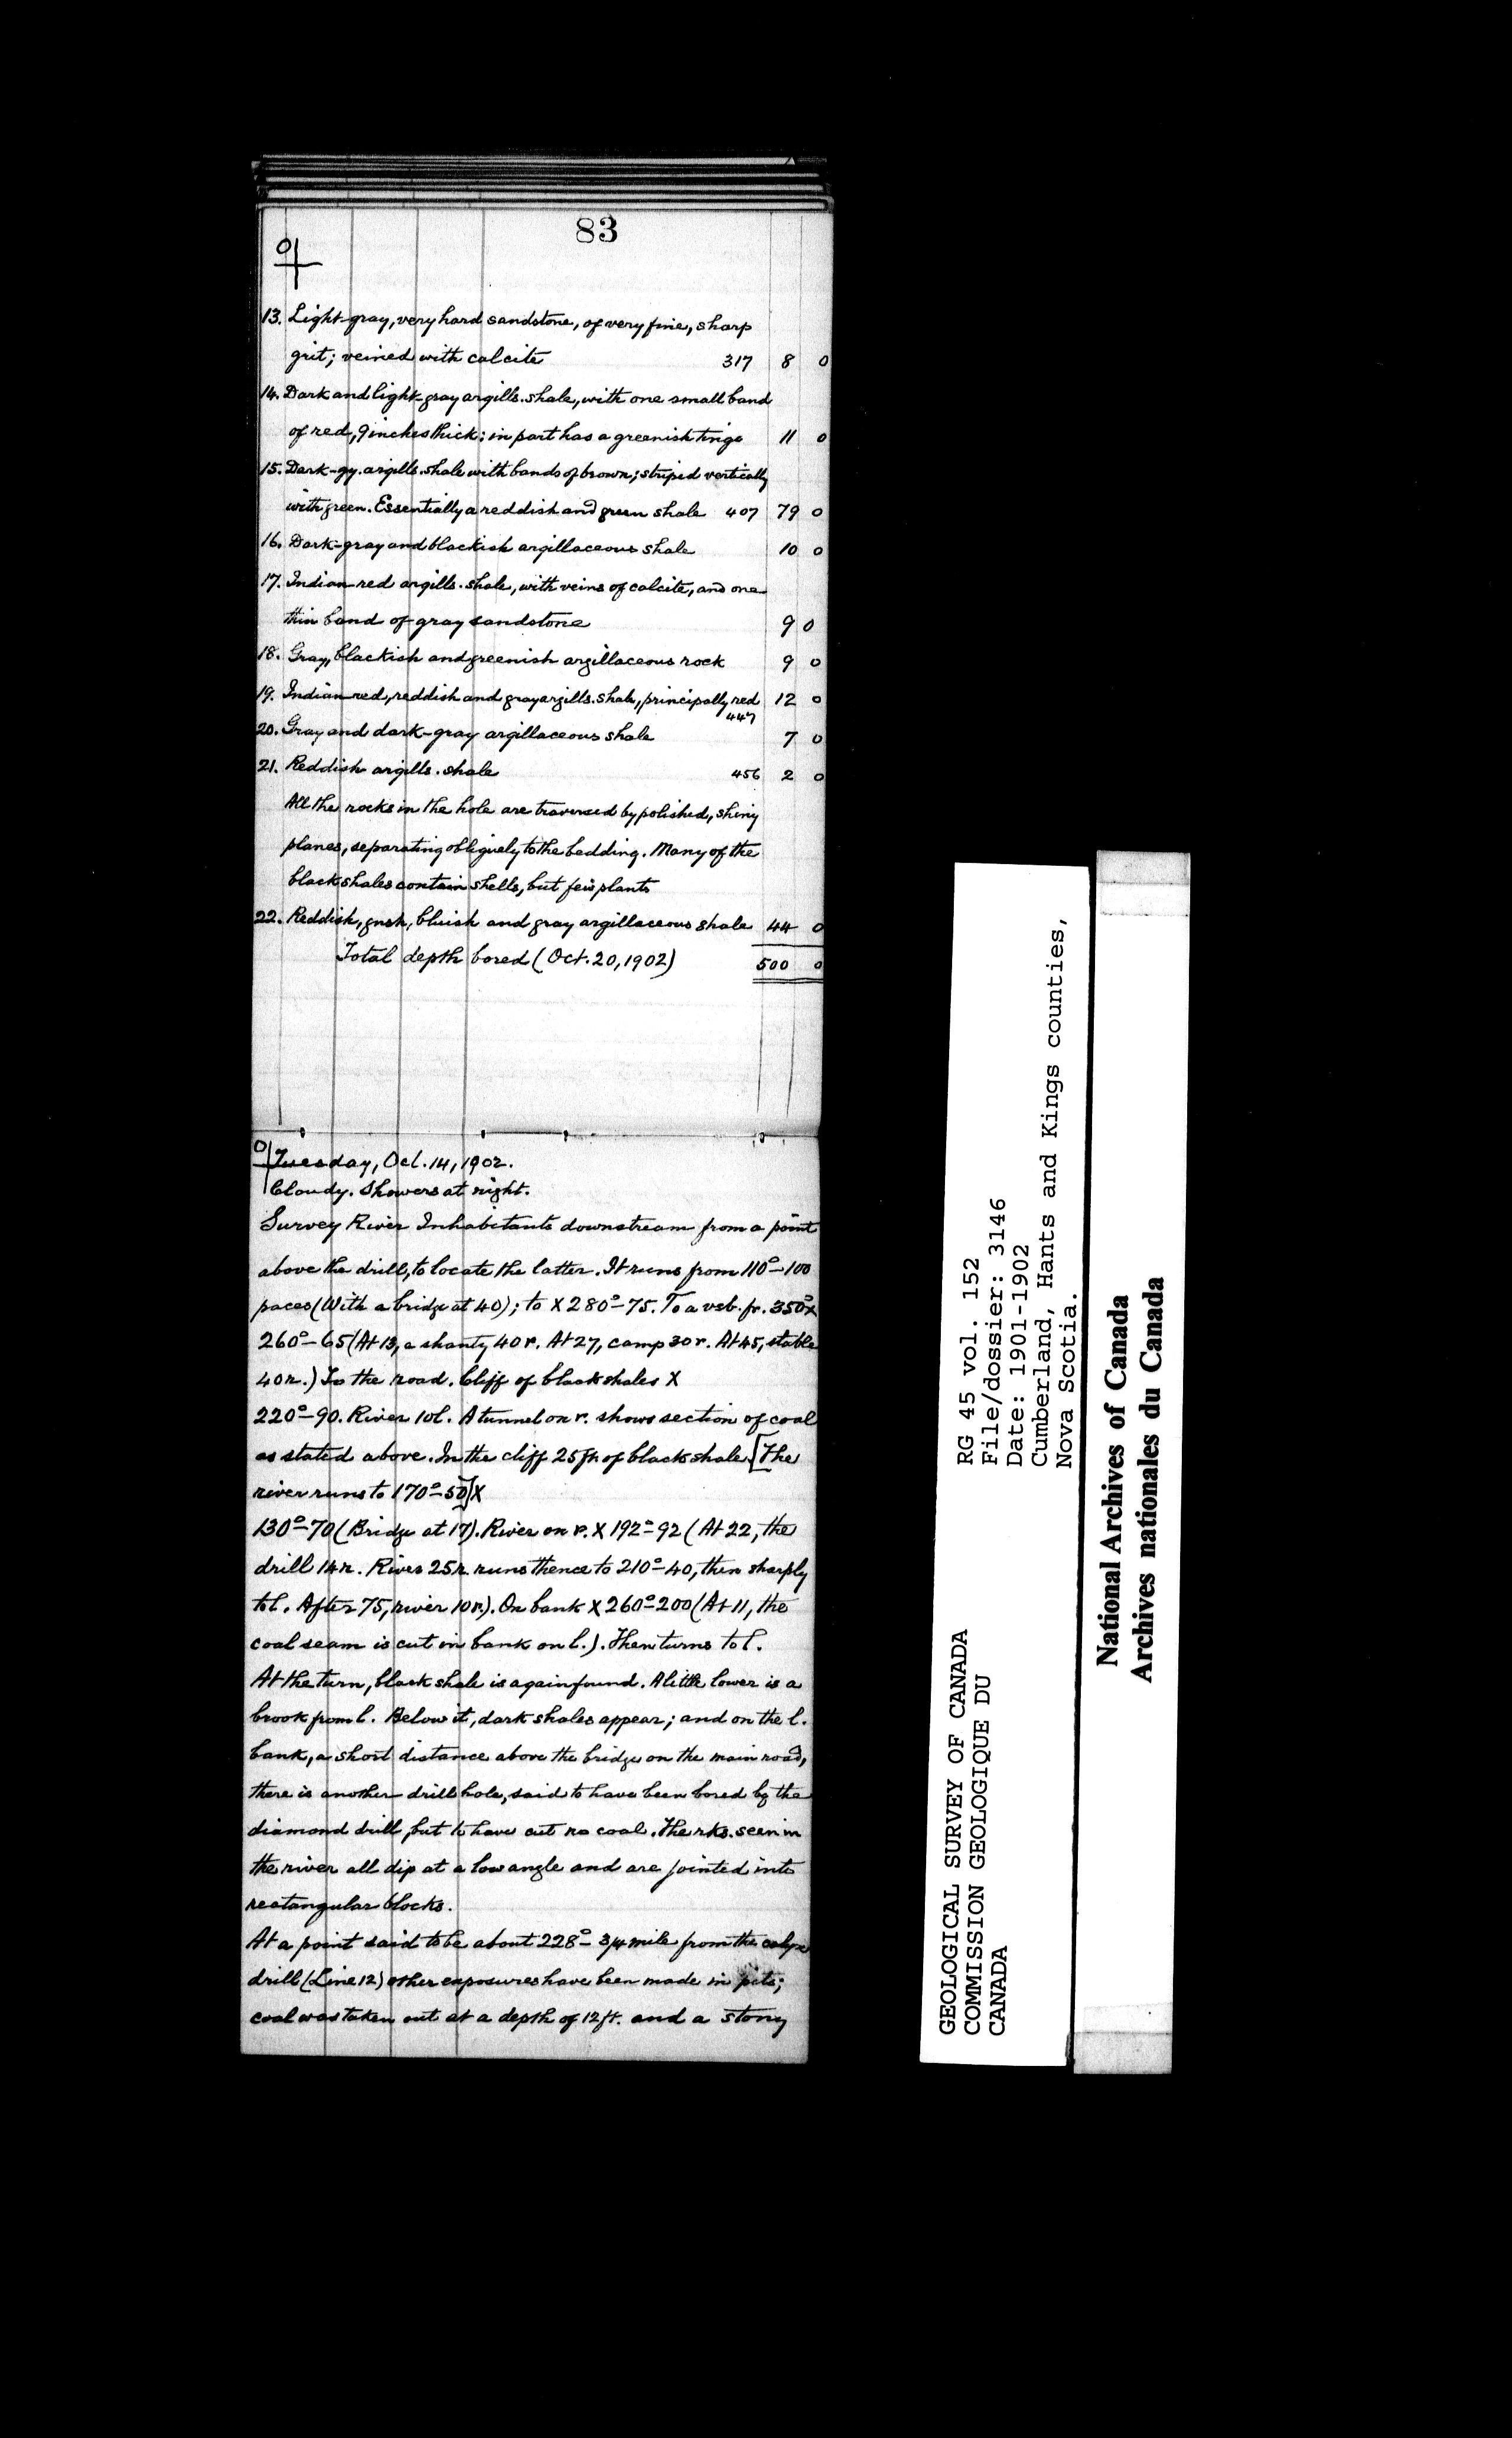 83
13. Light-gray, very hard sandstone, of very fine, sharp
grit; veined with calcite 317 8 0
14. Dark and light-gray argills. shale, with one small band
of red, 9 inches thick; in part has a greenish tinge 11 0
15. Dark-gy. argills. shale with bands of brown; striped vertically
with green. Essentially a reddish and green shale 407 79 0
16. Dark-gray and blackish argillaceous shale 10 0
17. Indian-red argills. shale, with veins of calcite, and one
thin band of gray sandstone 9 0
18. Gray, blackish and greenish argillaceous rock 9 0
19. Indian-red, reddish and gray argills. shale, principally red 12 0
447
20. Gray and dark-gray argillaceous shale 7 0
21. Reddish argills. shale 456 2 0
All the rocks in the hole are traversed by polished, shiny
planes, separating obliquely to the bedding. Many of the
black shales contain shells, but few plants
22. Reddish, gnsh, bluish and gray argillaceous shale 44 0
Total depth bored (Oct. 20, 1902) 500 0
Tuesday, Oct. 14, 1902.
Cloudy. Showers at night.
Survey River Inhabitants downstream from a point
above the drill, to locate the latter. It runs from 110°-100
paces (With a bridge at 40); to X 280°-75. To a vsb. fr. 350° X
260°-65 (At 13, a shanty 40 r. At 27, camp 30 r. At 45, stable
40 r.) To the road. Cliff of black shales X
220°-90. River 10 l. A tunnel on r. shows section of coal
as stated above. In the cliff 25 ft. of black shale. [The
river runs to 170°-50] X
130°-70 (Bridge at 17). River on r. X 192°-92 (At 22, the
drill 14 r. River 25 r. runs thence to 210°-40, then sharply
to l. After 75, river 10 r.). On bank X 260°-200 (At 11, the
coal seam is cut in bank on l.). Then turns to l.
At the turn, black shale is again found. A little lower is a
brook from l. Below it, dark shales appear; and on the l.
bank, a short distance above the bridge on the main road,
there is another drill hole, said to have been bored by the
diamond drill, but to have cut no coal. The rks. seen in
the river all dip at a low angle and are jointed into
rectangular blocks.
At a point said to be about 228°-3/4 mile from the calyx
drill (Line 12) other exposures have been made in pits;
coal was taken out at a depth of 12 ft. and a stony
GEOLOGICAL SURVEY OF CANADA
COMMISSION GEOLOGIQUE DU
CANADA
RG 45 vol. 152
File/dossier: 3146
Date: 1901-1902
Cumberland, Hants and Kings counties,
Nova Scotia.
National Archives of Canada
Archives nationales du Canada